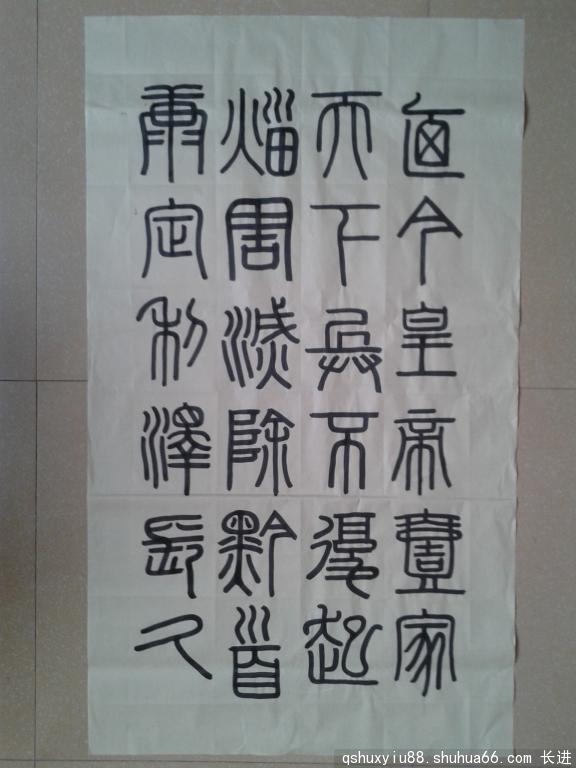 廼今皇帝壹家
天下兵不復起
災害滅除黔首
康定利澤長久
qshuxyiu88.shuhua66.com 长进